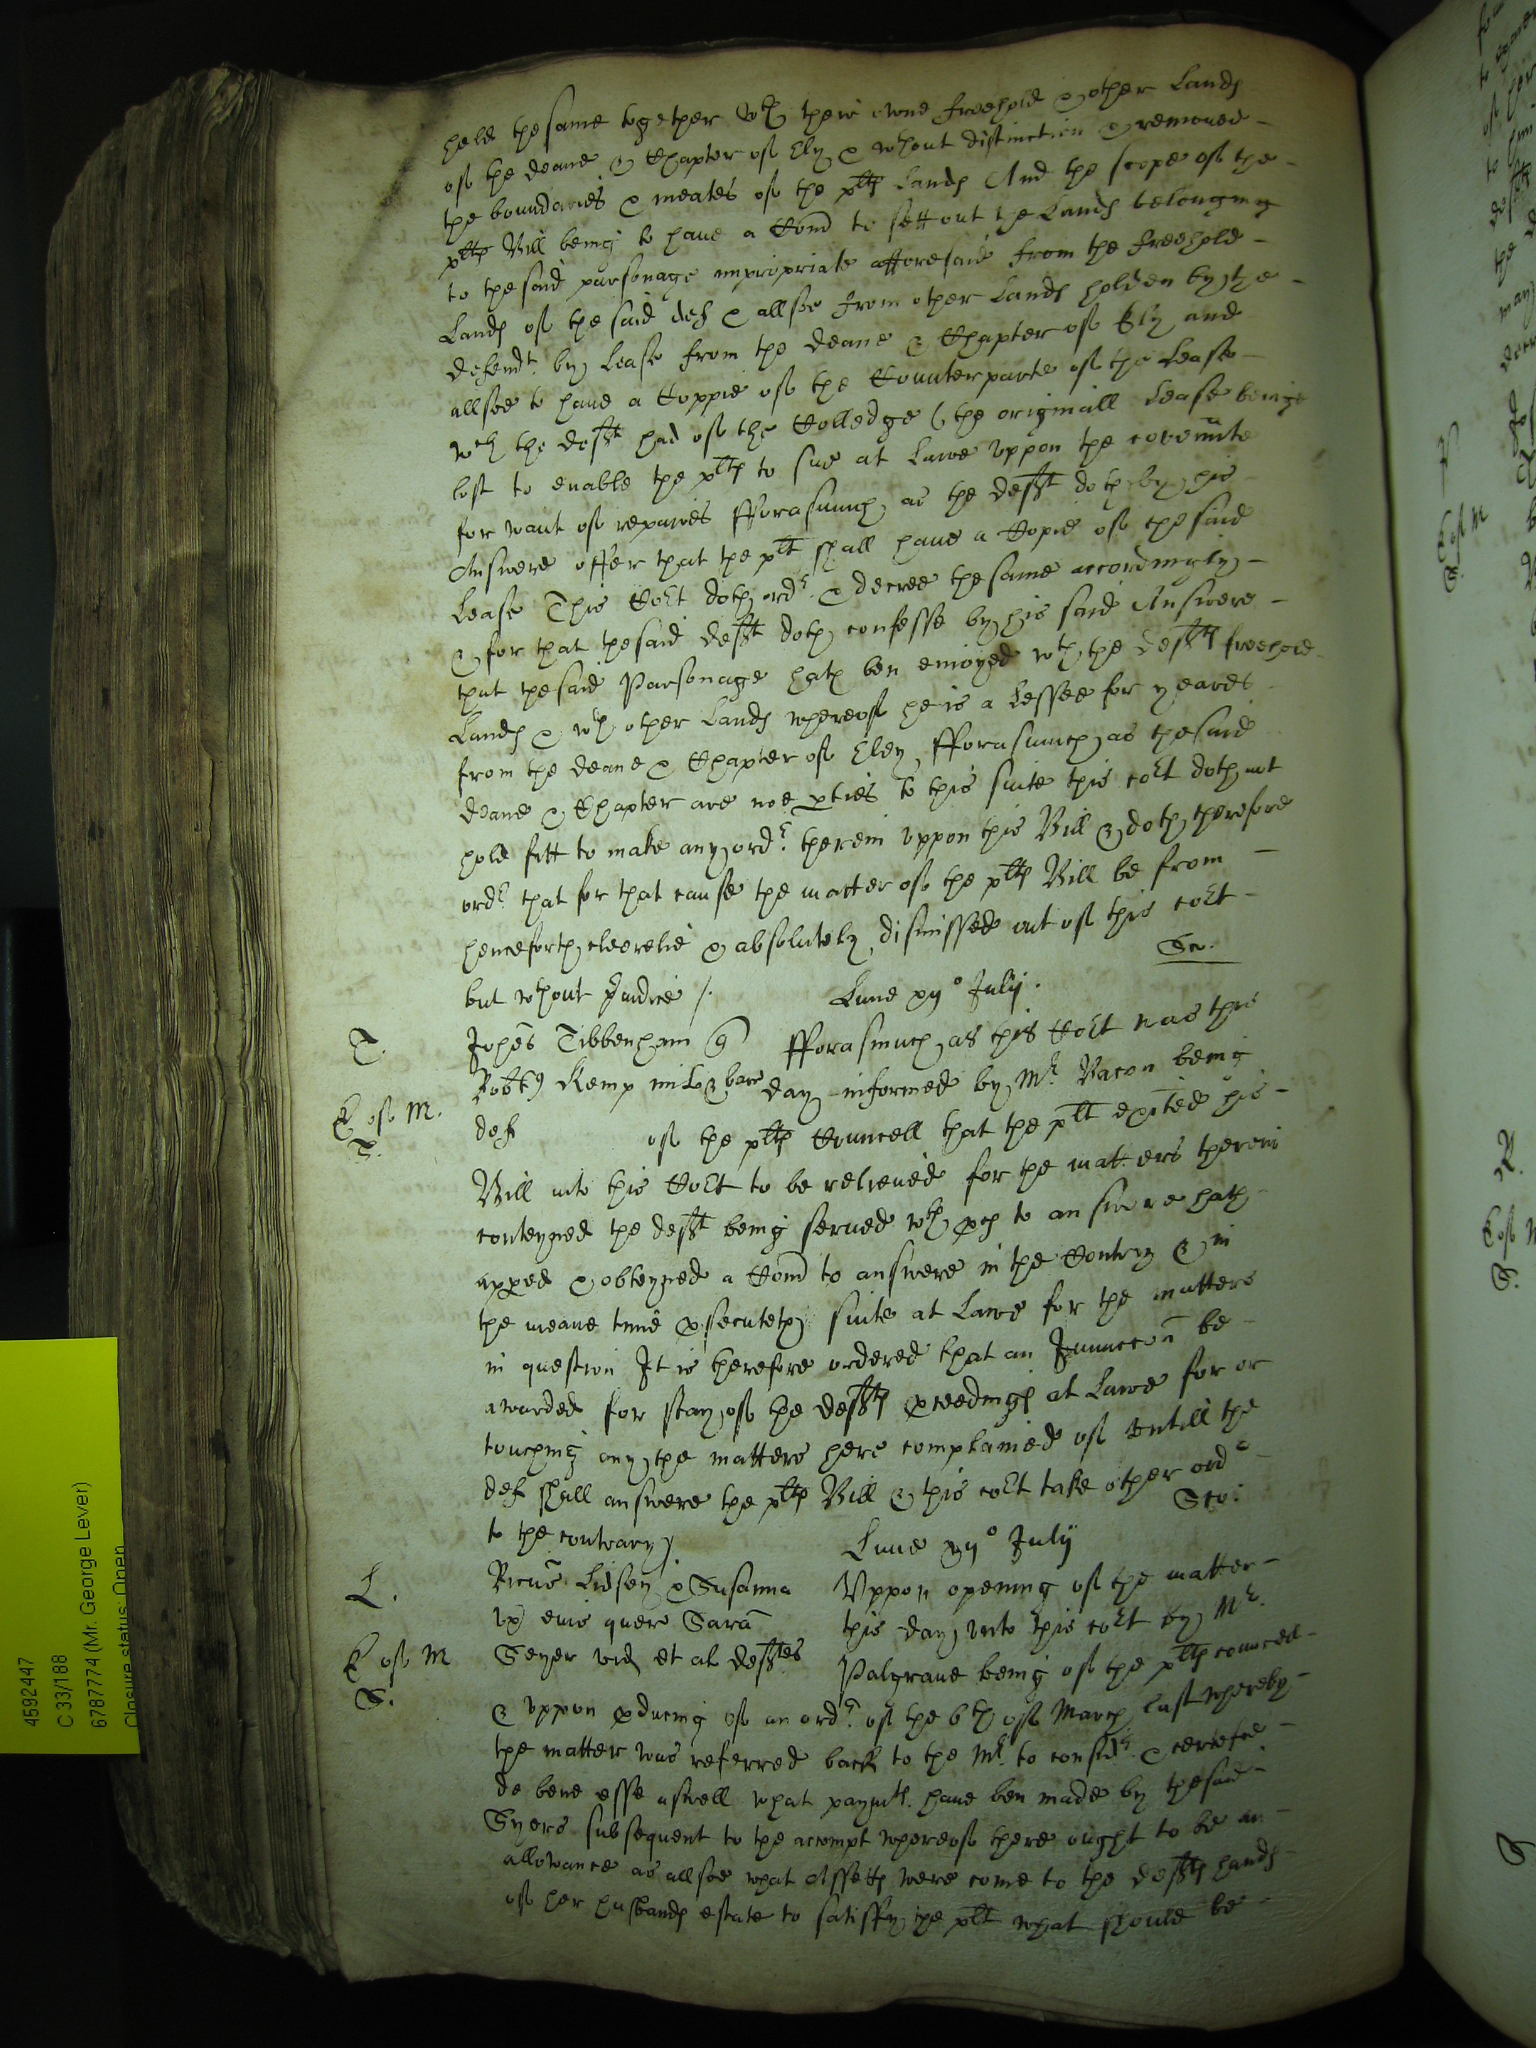 held the same together wth their owne freehold & other Lands
of the deane & Chapter of Ely & wthout distinction & removed
the boundaries & meates of the plts Lands And the scope of the
plts Bill being to have a Com to sett out the Lands belonging
to the said parsonage impropriate afforesaid from the freehold
Lands of the said def & allsoe from other Lands holden by the
defendt by Lease from the deane & Chapter of Ely and
allsoe to have a Coppie of the Counterparte of the Lease
wch the deft had of the Colledge (the originall Lease beinge
lost to enable the plts to sue at Lawe uppon the covennte
for want of repaires fforasmuch as the deft doth by his
Answere offer that the plt shall have a Copie of the said
Lease This Cort doth ordr & decree the same accordingly
& for that the said deft doth confesse by his said Answere
that the said Parsonage hath ben enioyed wth the defts freehold
Lands & wth other Lands whereof he is a Lessee for yeares
from the deane & Chapter of Eley, fforasmuch as the said
deane & Chapter are noe pties to this suite this cort doth not
hold fitt to make any ordr therein uppon this Bill & doth therefore
ordr that for that cause the matter of the plts Bill be from
henceforth cleerelie & absolutely dismissed out of this cort
but wthout piudice /. Sco.
Lune xy° July.
T. Johes Tibbenham q fforasmuch as this Cort was this
Robtus Kemp mil & bar day informed by Mr. Bacon being
E of M. def of the plts Councell that the plt exited his
T.
Bill into this Cort to be releived for the matters therein
conteyned the deft being served wth pch to answere hath
apped & obteyned a Com to answere in the Contry & in
the meane time psecuteth suite at Lawe for the matters
in question It is therefore ordered that an Iniuncon be
awarded for stay of the defts pceedings at Lawe for or
touching any the matters here complained of untill the
def shall answere the plts Bill & this cort take other ordr
to the contrary Sco:
Lune xy° July
L. Ricus Lidsey & Susanna Uppon opening of the matter
ux eius quer Sara this day unto this cort by Mr.
E of M Seyer vid et al deftes Palgrave being of the plts councell
S.
& uppon pducing of an ordr of the 6th of March last whereby
the matter was referred back to the Mr. to considr & certefie
de bene esse aswell what paymts. have ben made by the said
Syers subsequent to the accompt whereof there ought to be an
allowance as allsoe what Assetts were come to the defts hands
of her husbands estate to satisfy the plt what should be
4592447
C 33/188
6787774 (Mr. George Lever)
Closure status: Open